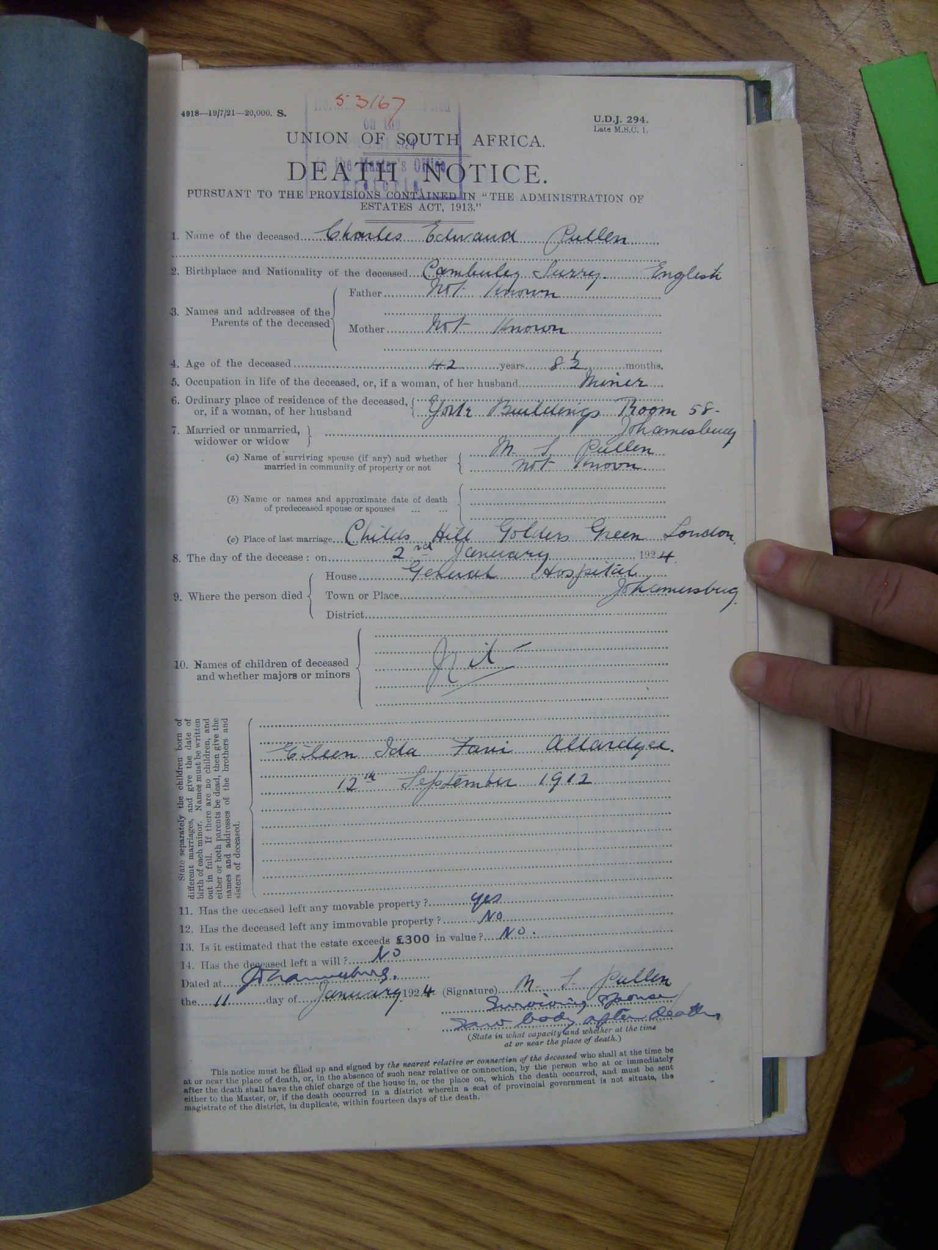 53167
4918—19/7/21—20,000. S.
U.D.J. 294.
Late M.S.C. 1.
on the
in the Master's Office
Pretoria
UNION OF SOUTH AFRICA.
DEATH NOTICE.
PURSUANT TO THE PROVISIONS CONTAINED IN "THE ADMINISTRATION OF
ESTATES ACT, 1913."
1. Name of the deceased Charles Edward Pullen
2. Birthplace and Nationality of the deceased Camberley Surry. English
3. Names and addresses of the Parents of the deceased
Father Not Known
Mother Not Known
4. Age of the deceased 42 years 8½ months.
5. Occupation in life of the deceased, or, if a woman, of her husband Miner
6. Ordinary place of residence of the deceased, or, if a woman, of her husband
York Buildings Room 58-
Johannesburg
7. Married or unmarried, widower or widow
(a) Name of surviving spouse (if any) and whether married in community of property or not
M S Pullen
not known
(b) Name or names and approximate date of death of predeceased spouse or spouses ... ...
(c) Place of last marriage Childs Hill Golders Green London
8. The day of the decease: on 2nd January 1924
9. Where the person died
House General Hospital
Town or Place Johannesburg
District
10. Names of children of deceased and whether majors or minors
Nil
State separately the children born of
different marriages, and give the date of
birth of each minor. Names must be written
out in full. If there are no children, and
either or both parents be dead, then give the
names and addresses of the brothers and
sisters of deceased.
Eileen Ida Allardyce.
12th September 1912
11. Has the deceased left any movable property? yes
12. Has the deceased left any immovable property? No
13. Is it estimated that the estate exceeds £300 in value? No.
14. Has the deceased left a will? No
Dated at Johannesburg.
the 11 day of January 1924 (Signature) M S Pullen
Surviving spouse
saw body after death
(State in what capacity and whether at the time
or near the place of death.)
This notice must be filled up and signed by the nearest relative or connection of the deceased who shall at the time be
at or near the place of death, or, in the absence of such near relative or connection, by the person who at or immediately
after the death shall have the chief charge of the house in, or the place on, which the death occurred, and must be sent
either to the Master, or, if the death occurred in a district wherein a seat of provincial government is not situate, the
magistrate of the district, in duplicate, within fourteen days of the death.